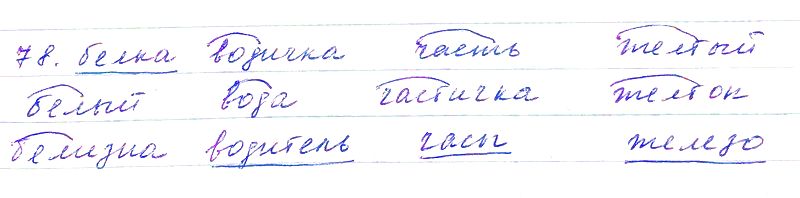 78. белка водичка часть желтый
белый вода частичка желток
белизна водитель часы железо